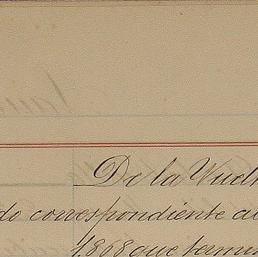 De la Vuelt
do correspondiente al
1868 que termin